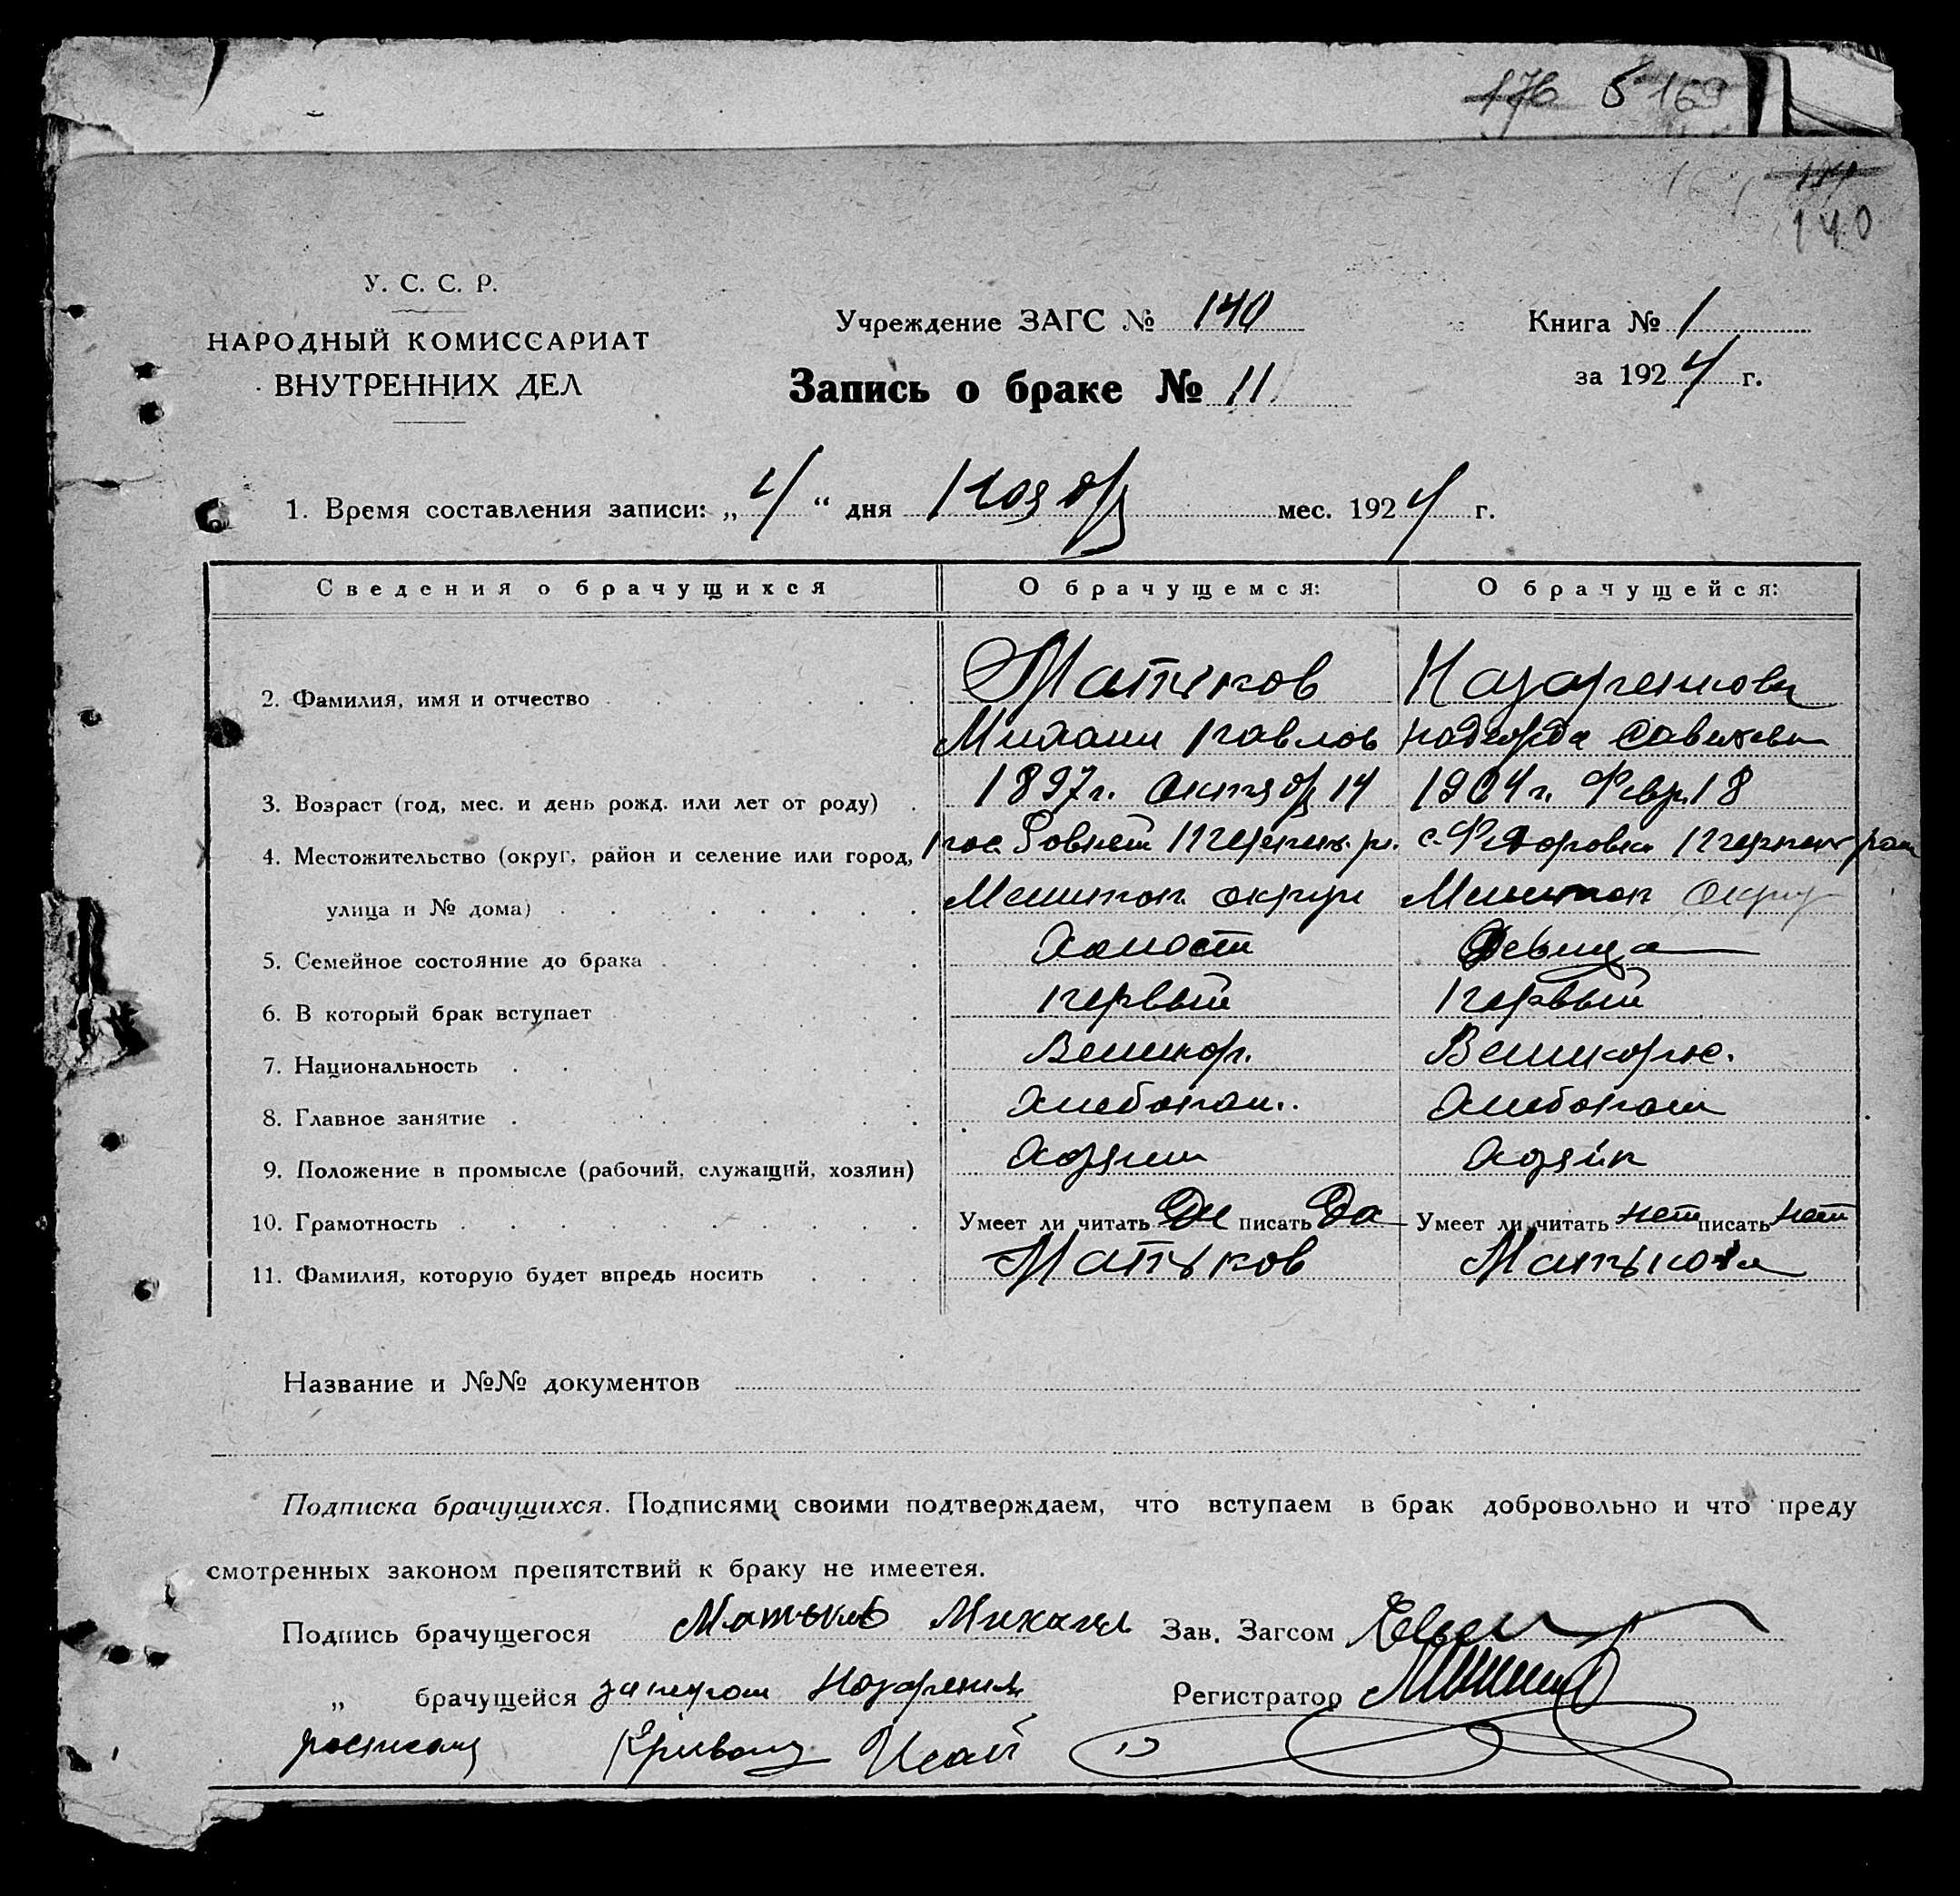 176 5 169
140
У. С. С. Р.
НАРОДНЫЙ КОМИССАРИАТ
ВНУТРЕННИХ ДЕЛ
Учреждение ЗАГС № 140
Запись о браке № 11
Книга № 1
за 1924 г.
1. Время составления записи: „ 4 “ дня Ноябр мес. 1924 г.
Сведения о брачущихся О брачущемся: О брачущейся:
2. Фамилия, имя и отчество Матыков Назаренкова
Михаил Павлов Надежда Савихова
3. Возраст (год, мес. и день рожд. или лет от роду) 1897 г. Октябр 14 1904 г. Февр. 18
4. Местожительство (округ, район и селение или город, пос. Ровный с. Федоровка
улица и № дома) Мелитоп. округ Мелитоп округ
5. Семейное состояние до брака Холост Девица
6. В который брак вступает первый первый
7. Национальность Великор. Великорос.
8. Главное занятие Хлебопаш. Хлебопаш
9. Положение в промысле (рабочий, служащий, хозяин) Хозяин Хозяйк
10. Грамотность Умеет ли читать Да писать Да Умеет ли читать нет писать нет
11. Фамилия, которую будет впредь носить Матыков Матыкова
Название и №№ документов
Подписка брачущихся. Подписями своими подтверждаем, что вступаем в брак добровольно и что преду
смотренных законом препятствий к браку не имеетея.
Подпись брачущегося Матыков Михаил Зав. Загсом
„ брачущейся за неграм Назаренк Регистратор
росписался Кривош Исай